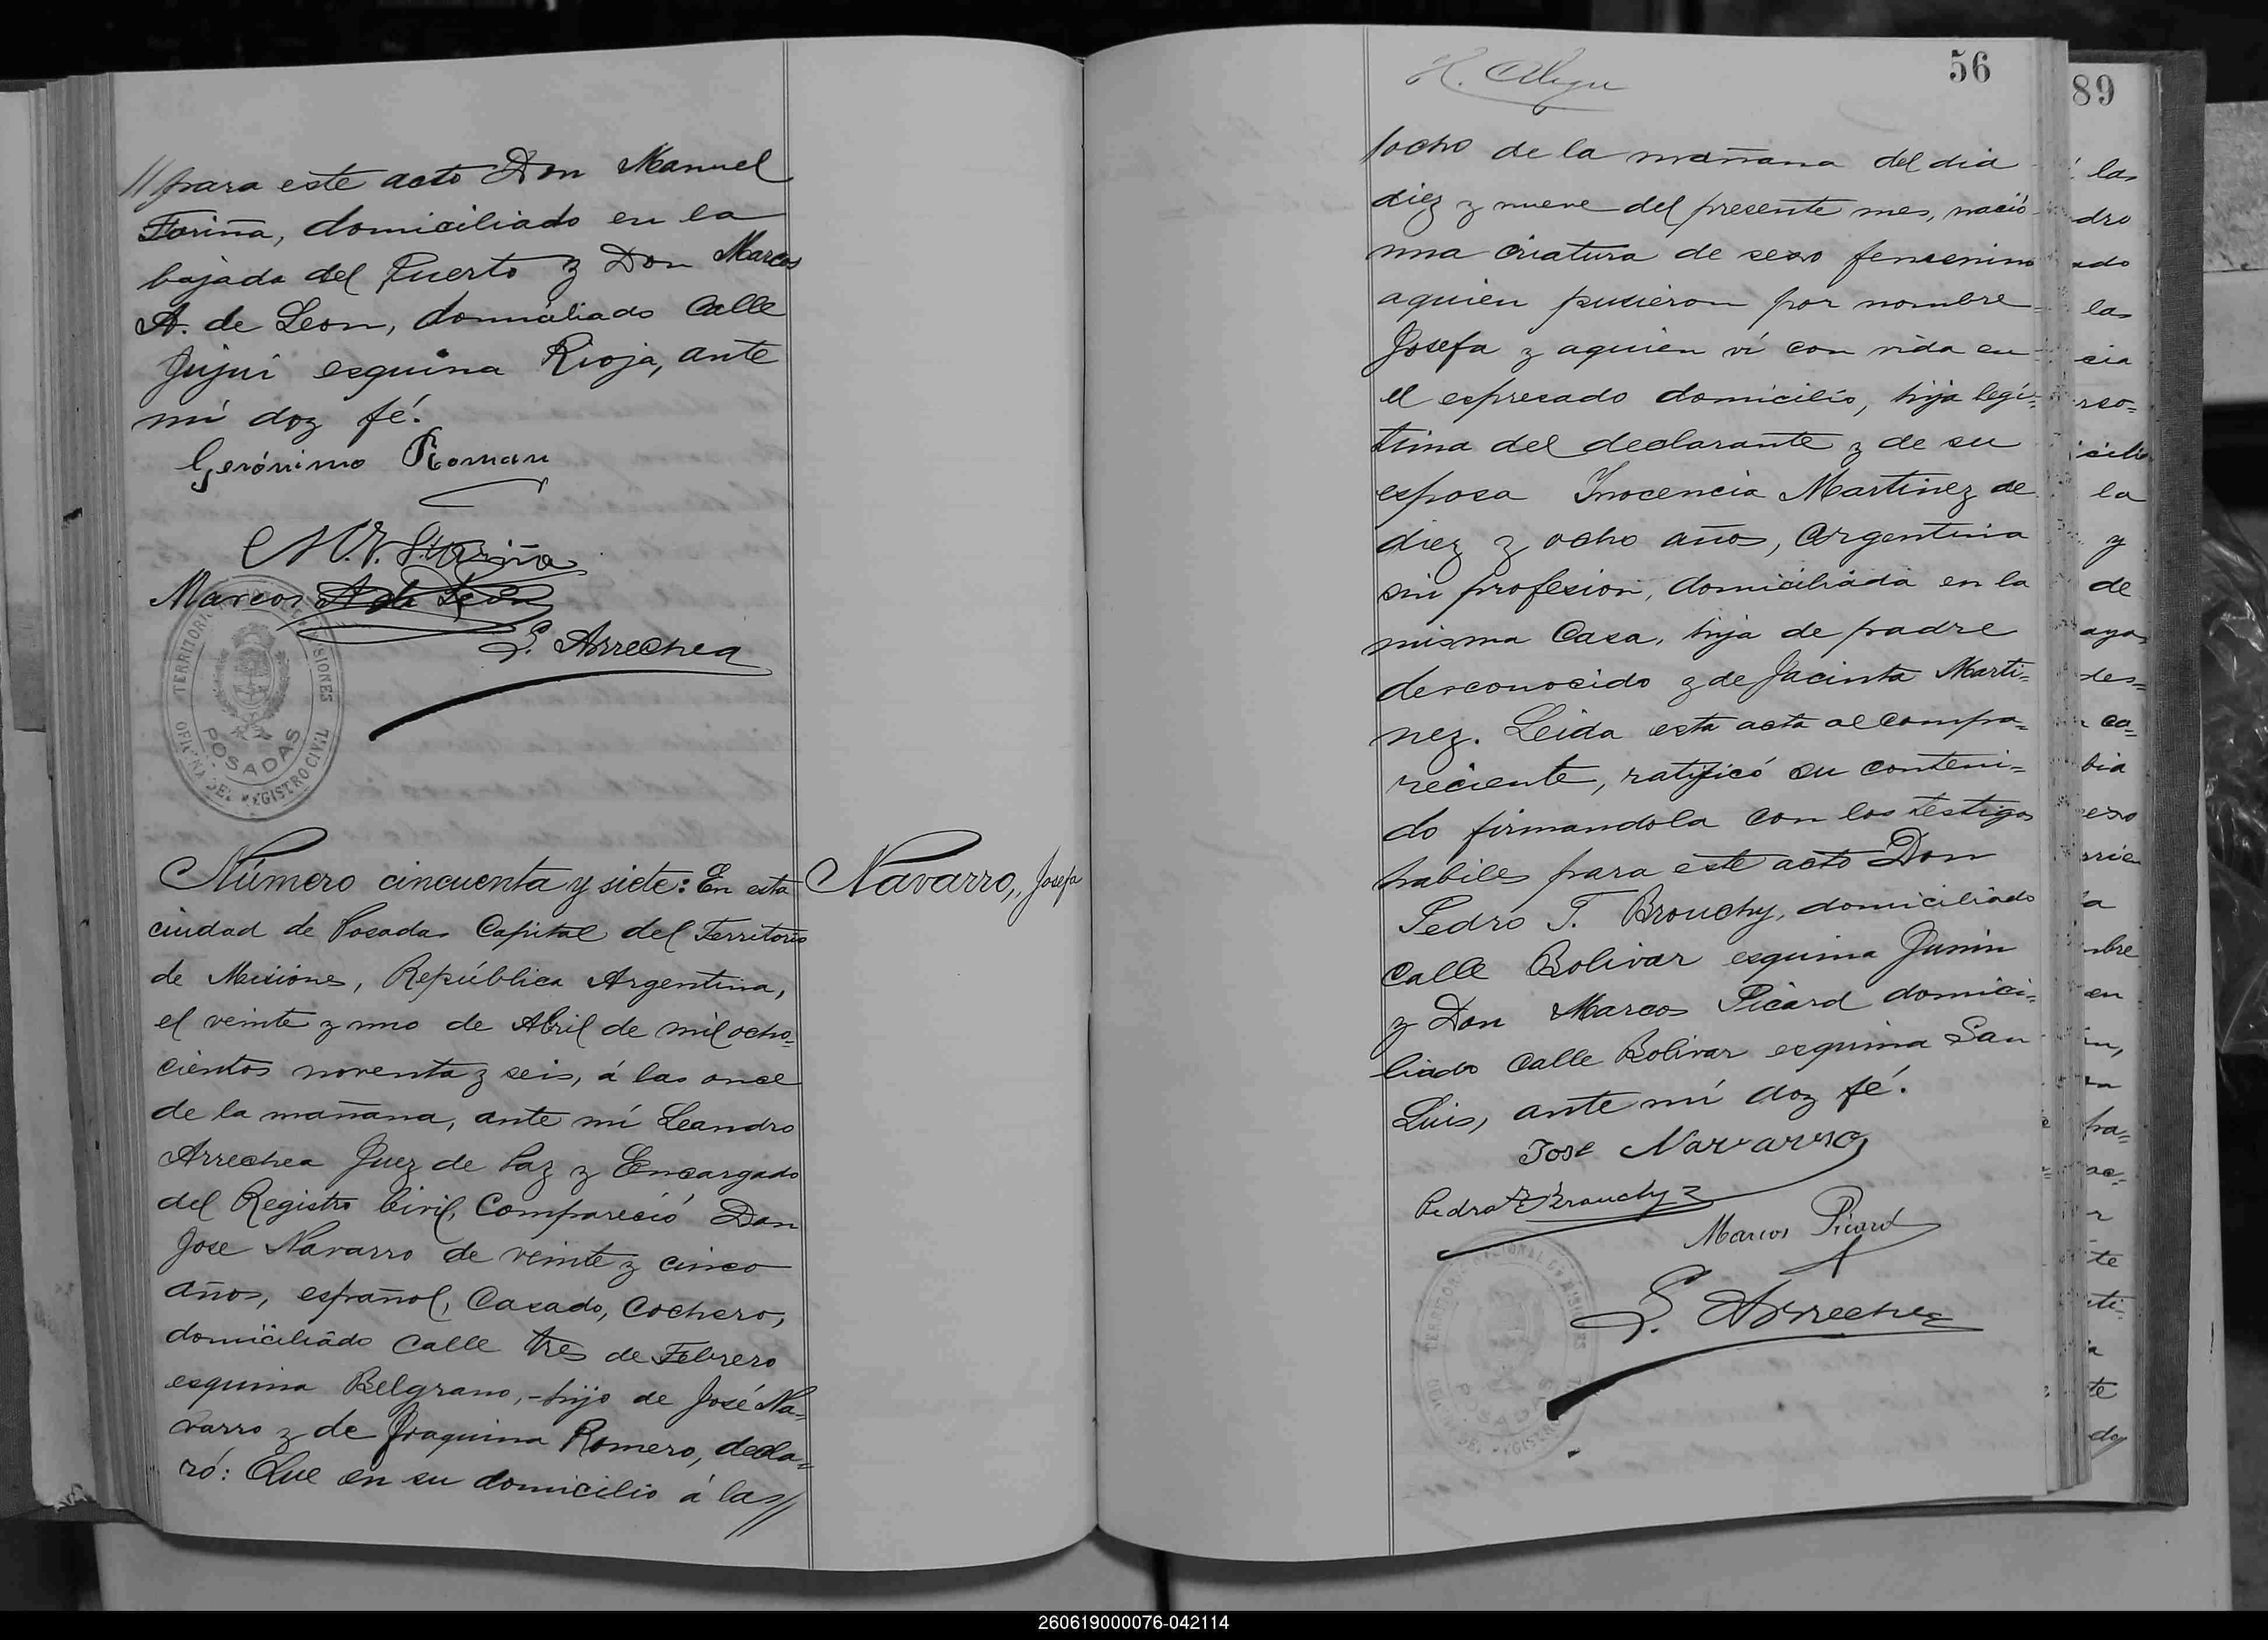 // para este acto Don Manuel
Fariña, domiciliado en la
bajada del Puerto y Don Marcos
A. de Leon, domiciliado Calle
Jujui esquina Rioja, ante
mí doy fé.
Gerónimo Roman
Marcos A. de Leon
L. Arrechea
TERRITORIO MISIONES
POSADAS
OFICINA DEL REGISTRO CIVIL
Número cincuenta y siete: En esta
Navarro,, Josefa
ciudad de Posadas Capital del Territorio
de Misiones, República Argentina,
el veinte y uno de Abril de mil ocho=
cientos noventa y seis, á las once
de la mañana, ante mí Leandro
Arrechea Juez de Paz y Encargado
del Registro Civil, Compareció Don
Jose Navarro de veinte y cinco
años, español, Casado, Cochero,
domiciliado Calle tres de Febrero
esquina Belgrano, - hijo de José Na=
varro y de Joaquina Romero, decla=
ró: Que en su domicilio á las//
56
//ocho de la mañana del dia
diez y nueve del presente mes, nació
una criatura de sexo femenino
aquien pusieron por nombre
Josefa y aquien ví con vida en
el espresado domicilio, hija legi=
tima del declarante y de su
esposa Inocencia Martinez de
diez y ocho años, Argentina
sin profesion, domiciliada en la
misma Casa, hija de padre
desconocido y de Jacinta Marti=
nez. Leida esta acta al compa=
reciente, ratificó su conteni=
do firmandola con los testigos
habiles para este acto Don
Pedro T. Brouchy, domiciliado
Calle Bolivar esquina Junin
y Don Marcos Picard domici=
liado Calle Bolivar esquina San
Luis, ante mí doy fé.
Jose Navarro
Pedro T. Brouchy
Marcos Picard
L. Arrechea
TERRITORIO NACIONAL DE MISIONES
POSADAS
89
las
dro
ado
las
cia
rso=
la
y
de
des=
ca=
bia
exo
la
mbre
en
ha=
ac=
te
ti=
te
doy
260619000076-042114